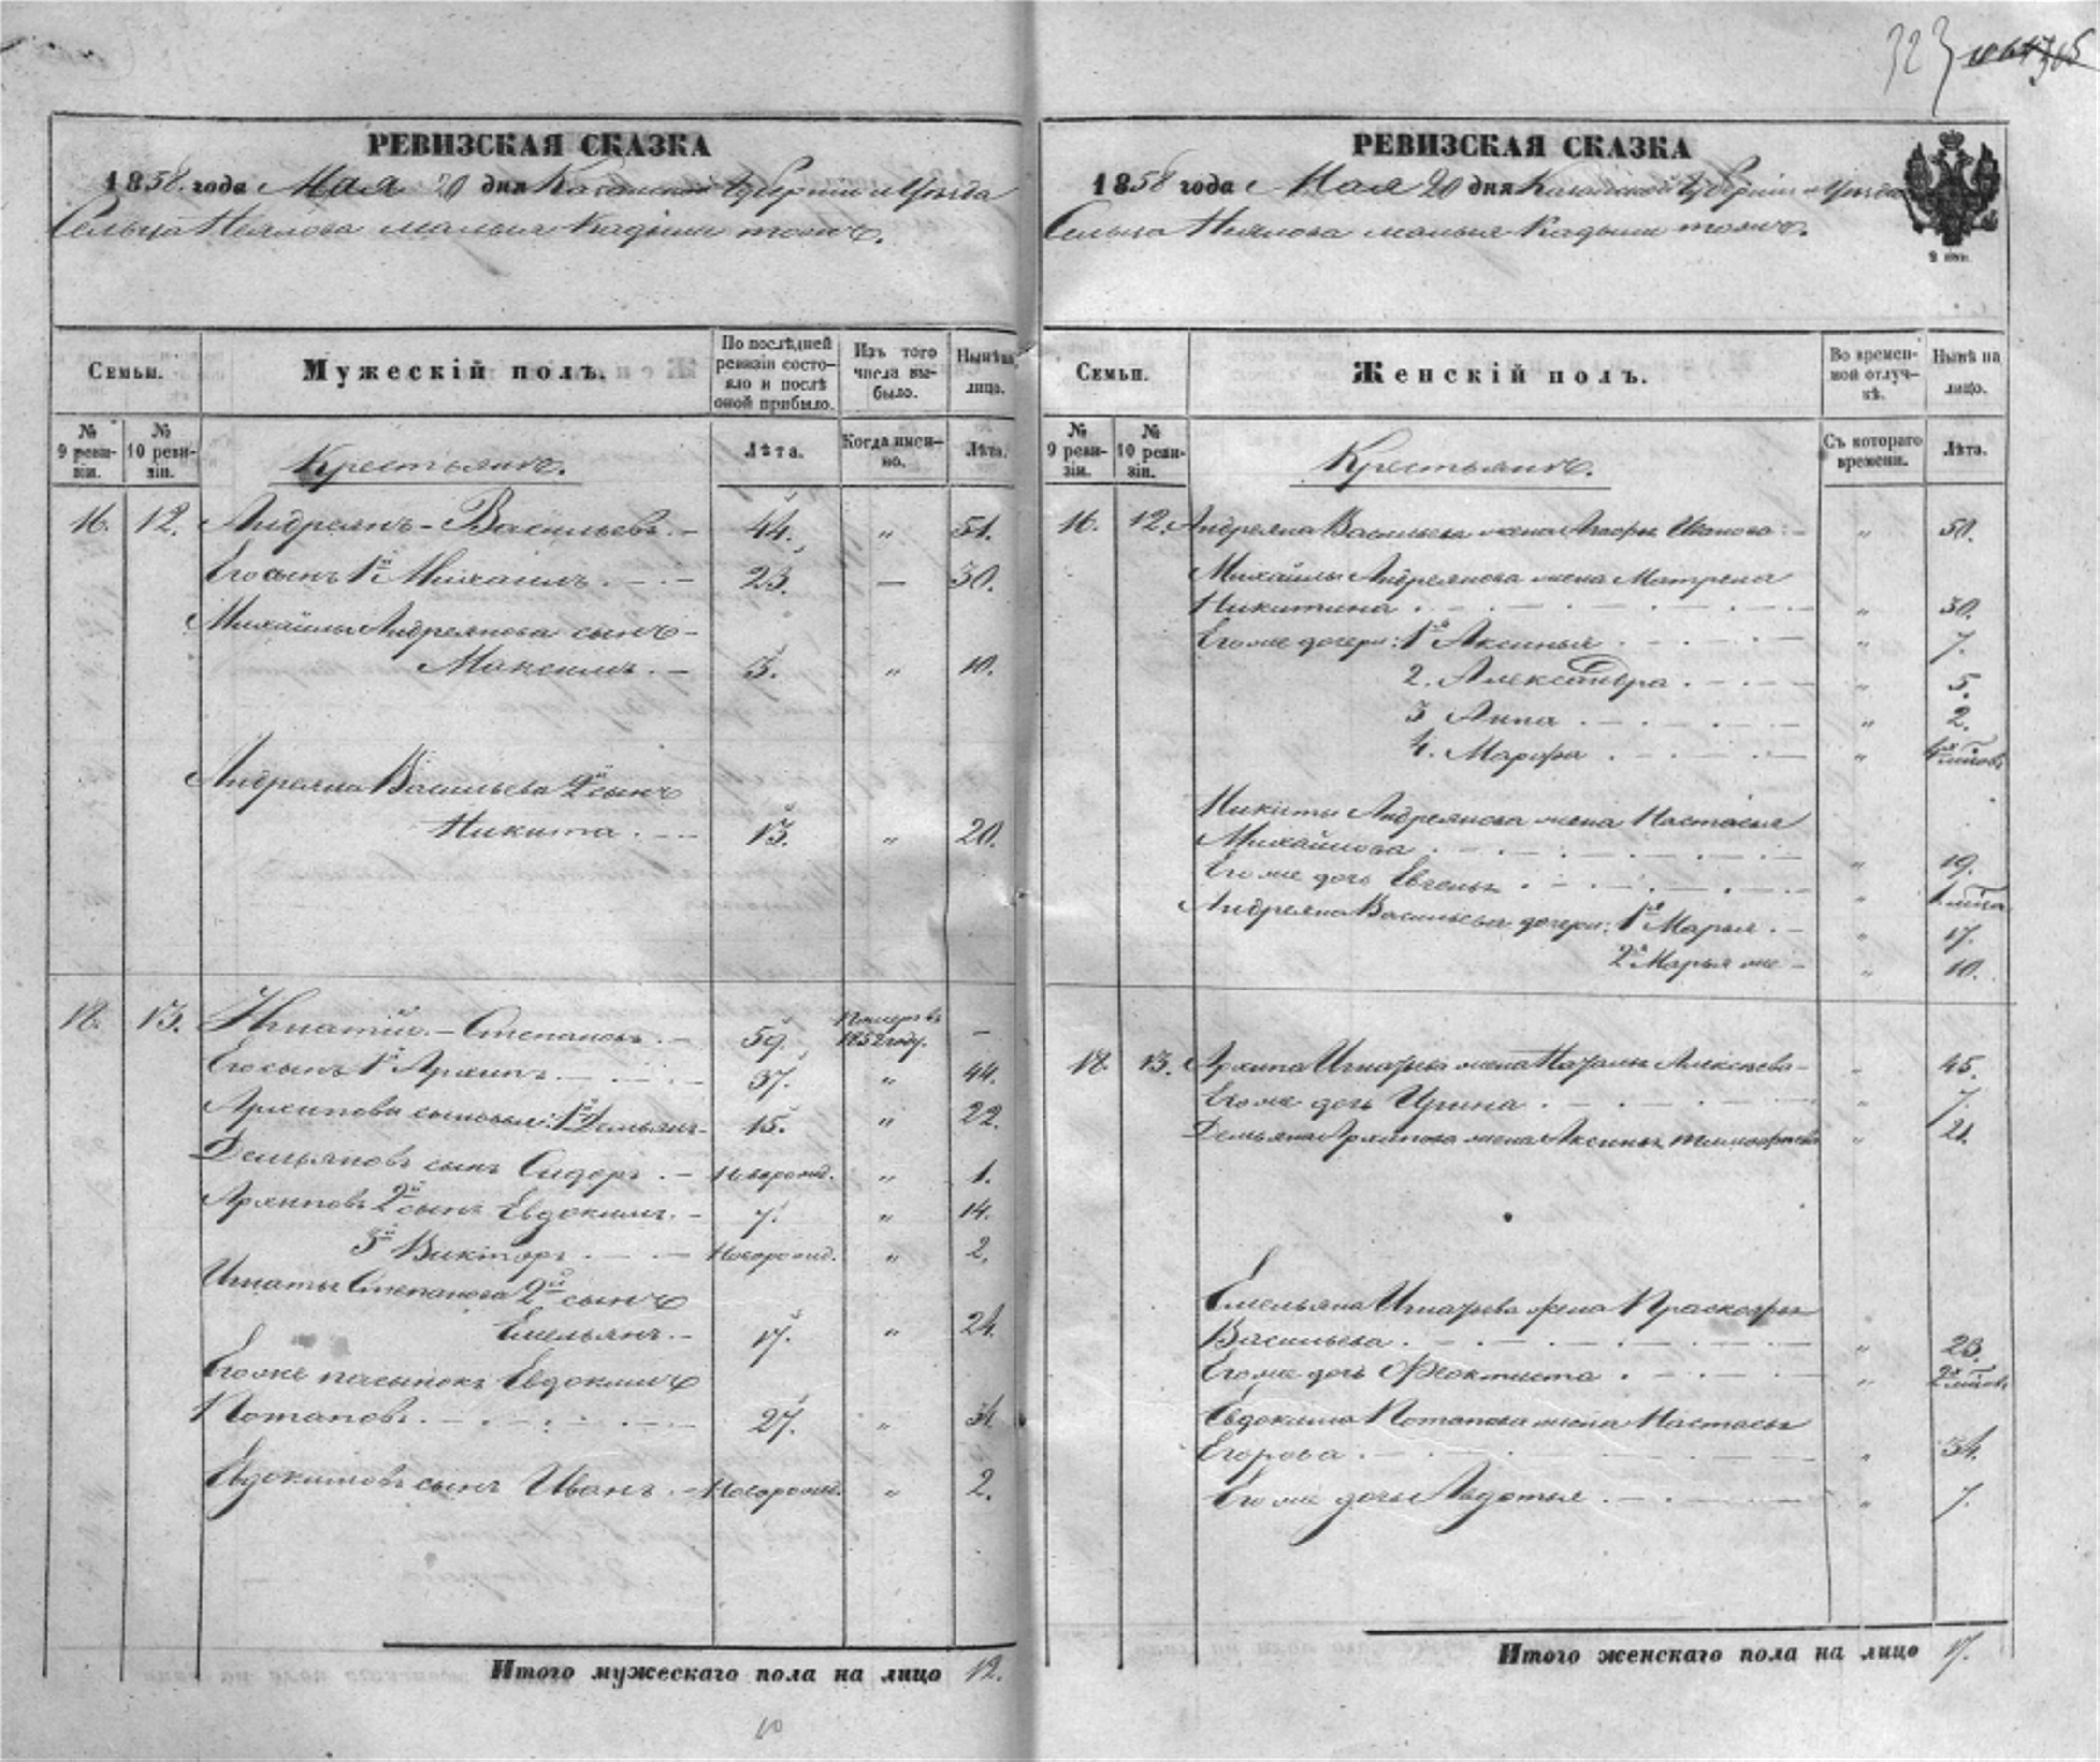 323
РЕВИЗСКАЯ СКАЗКА
1858 года Мая 20 дня Казанской Губернии и Уезда
Сельца малыя Кадыши тожъ.
Семьи.
Мужескій полъ.
По послѣдней ревизіи состояло и послѣ оной прибыло.
Изъ того числа выбыло.
Нынѣ на лицо.
№ 9 ревизіи.
№ 10 ревизіи.
Крестьяне.
Лѣта.
Когда именно.
Лѣта.
16. 12. Андреянъ Васильевъ. 44. " 51.
Его сынъ 1й Михаилъ 23. — 30.
Михайлы Андреянова сынъ
Максимъ. 3. " 10.
Андреяна Васильева 2й сынъ
Никита. 13. " 20.
18. 13. Игнатій Степановъ. 59. Померъ въ 1852 году. —
Его сынъ 1й Архипъ 37. " 44.
Архиповы сыновья: 1й Демьянъ 15. " 22.
Демьяновъ сынъ Сидоръ. Новорожд. " 1.
Архиповъ 2й сынъ Евдокимъ. 7. " 14.
3й Викторъ Новорожд. " 2.
Игнатья Степанова 2й сынъ
Емельянъ. 17. " 24.
Егоже пасынокъ Евдокимъ
Потаповъ. 27. " 34.
Евдокимовъ сынъ Иванъ. Новорожд. " 2.
Итого мужескаго пола на лицо 12.
10
РЕВИЗСКАЯ СКАЗКА
1858 года Мая 20 дня Казанской Губерніи и Уезда
Сельца малыя Кадыши тожъ.
Семьи.
Женскій полъ.
Во временной отлучкѣ.
Нынѣ на лицо.
№ 9 ревизіи.
№ 10 ревизіи.
Крестьяне.
Съ котораго времени.
Лѣта.
16. 12. Андреяна Васильева жена Иванова " 50.
Михайлы Андреянова жена Матрена
Никитина " 30.
Его же дочери: 1я Аксинья " 7.
2. Александра " 5.
3 Анна " 2.
4. Марфа "
Никиты Андреянова жена Настасья
Михайлова " 19.
Его же дочь Евгенья "
Андреяна Васильева дочери: 1я Марья " 17.
2я Марья же " 10.
18. 13. Архипа Игнатьева жена Наталья Алексѣева " 45.
Его же дочь Ирина " 7.
Демьяна Архипова жена Аксинья Тимофѣева " 21.
Емельяна Игнатьева жена Прасковья
Васильева " 23.
Его же дочь Феоктиста "
Евдокима Потапова жена Настасья
Егорова " 34.
Его же дочь Авдотья " 7.
Итого женскаго пола на лицо 17.